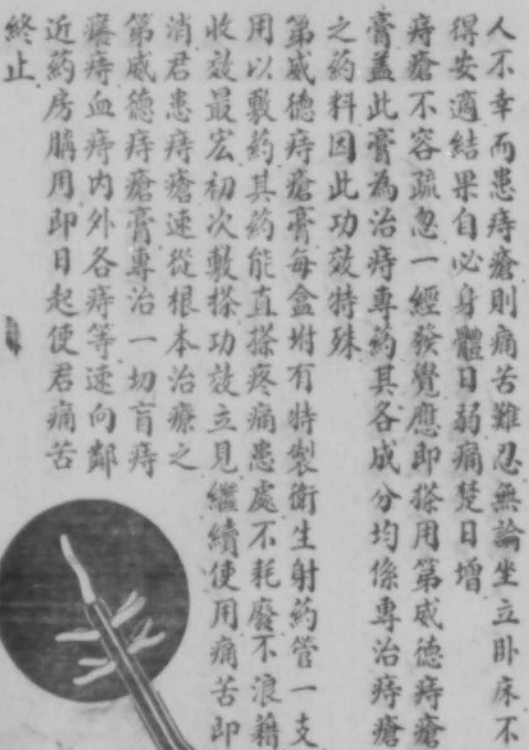 人不幸而患痔瘡則痛苦難忍無論坐立卧床不
得安適結果自必身體日弱痛楚日增
痔瘡不容疏忽一經發覺應即搽用第威德痔瘡
膏蓋此膏為治痔專葯其各成分均係專治痔瘡
之葯料因此功效特殊
第威德痔瘡膏每盒坿有特製衛生射葯管一支
用以敷葯其葯能直搽疼痛患處不耗廢不浪藉
收效最宏初次敷搽功效立見繼續使用痛苦即
消君患痔瘡速從根本治療之
第威德痔瘡膏專治一切盲痔
癢痔血痔內外各痔等速向鄰
近葯房購用即日起使君痛苦
終止